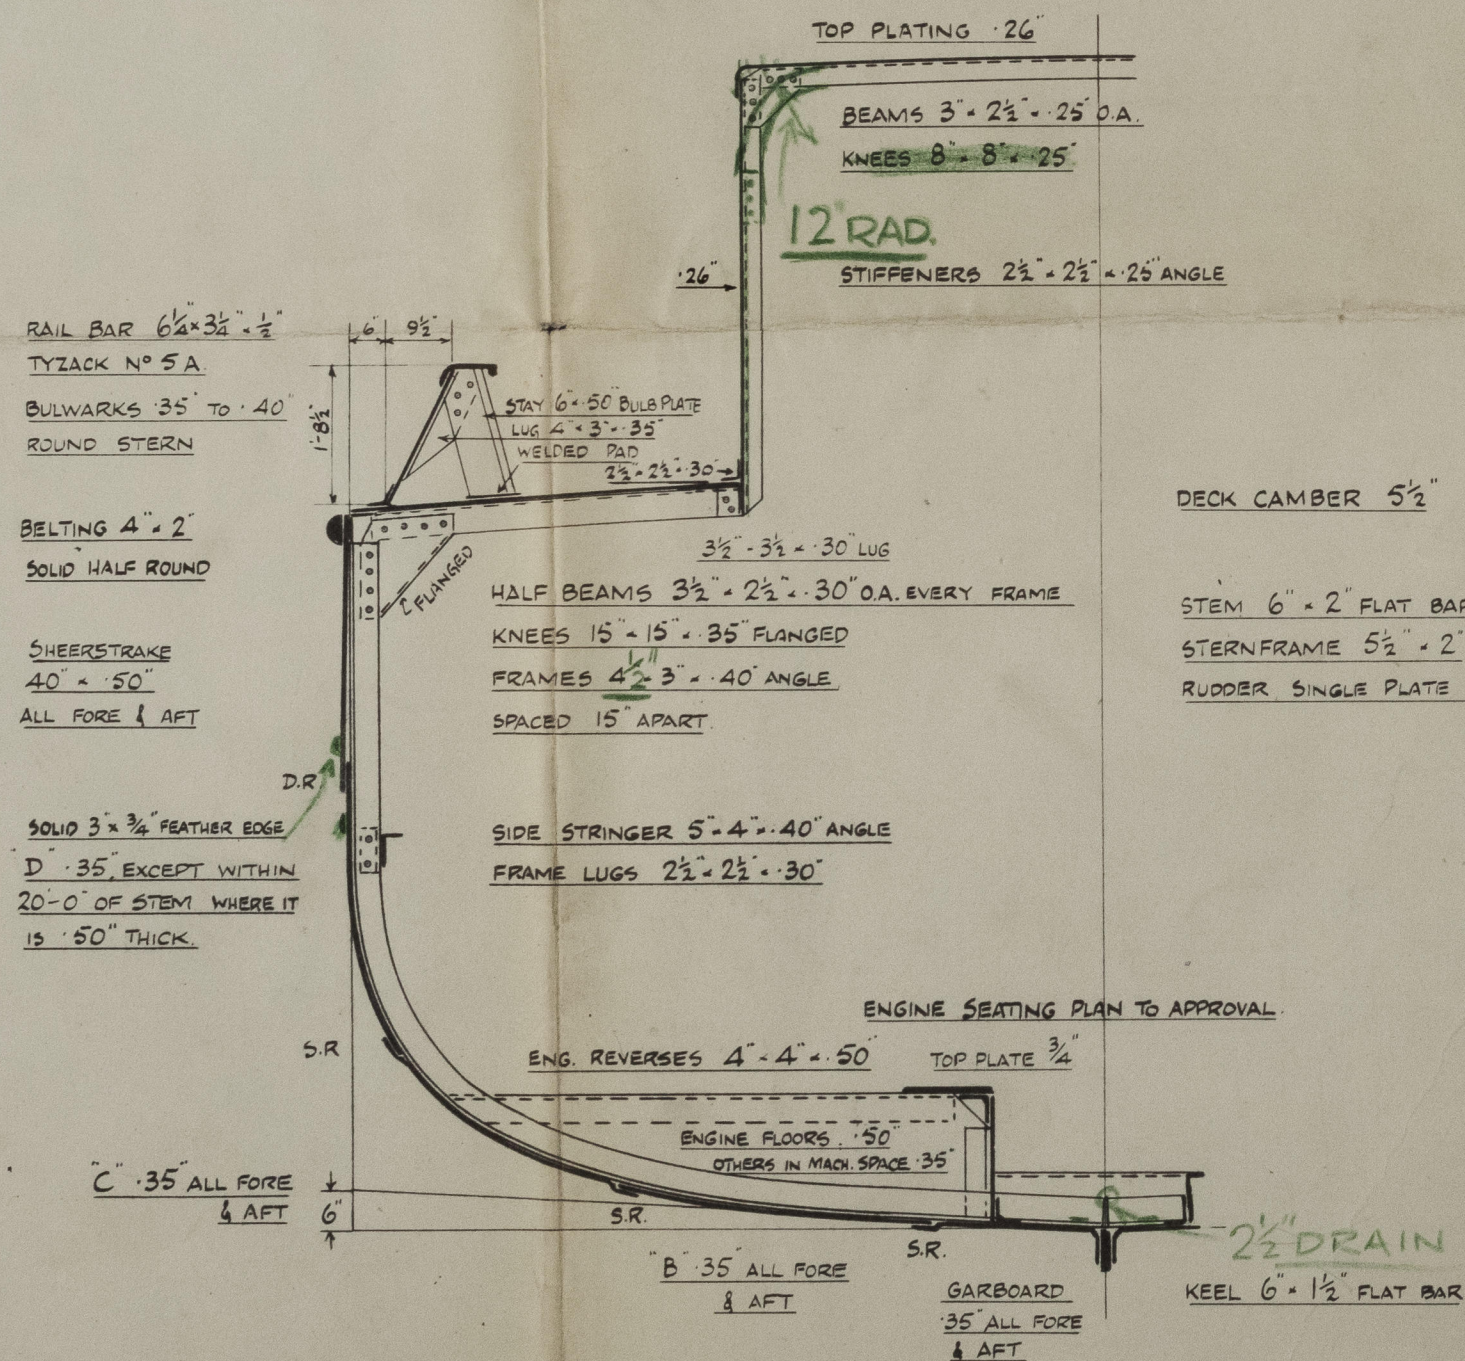 TOP PLATING ·26"
BEAMS 3" × 2½" × ·25" O.A.
KNEES 8" × 8" × ·25"
12" RAD.
·26"
STIFFENERS 2½" × 2½" × ·25" ANGLE
RAIL BAR 6¼" × 3¼" × ½"
TYZACK Nº 5 A.
BULWARKS ·35" TO ·40"
ROUND STERN
6"
9½"
1'-8½"
STAY 6" × ·50" BULB PLATE
LUG 4" × 3" × ·35"
WELDED PAD
2½" × 2½" × ·30"
BELTING 4" × 2"
SOLID HALF ROUND
2" FLANGED
3½" × 3½" × ·30" LUG
DECK CAMBER 5½"
HALF BEAMS 3½" × 2½" × ·30" O.A. EVERY FRAME
KNEES 15" × 15" × ·35" FLANGED
FRAMES 4½" × 3" × ·40" ANGLE
SPACED 15" APART.
STEM 6" × 2" FLAT BAR
STERNFRAME 5½" × 2"
RUDDER SINGLE PLATE
SHEERSTRAKE
40" × ·50"
ALL FORE & AFT
D.R.
SOLID 3" × ¾" FEATHER EDGE
"D" ·35", EXCEPT WITHIN
20'-0" OF STEM WHERE IT
IS ·50" THICK.
SIDE STRINGER 5" × 4" × ·40" ANGLE
FRAME LUGS 2½" × 2½" × ·30"
ENGINE SEATING PLAN TO APPROVAL.
S.R
ENG. REVERSES 4" × 4" × ·50"
TOP PLATE ¾"
ENGINE FLOORS. ·50"
OTHERS IN MACH. SPACE ·35"
"C" ·35" ALL FORE
& AFT
6"
S.R.
S.R.
2½" DRAIN
"B" ·35" ALL FORE
& AFT
GARBOARD
·35" ALL FORE
& AFT
KEEL 6" × 1½" FLAT BAR